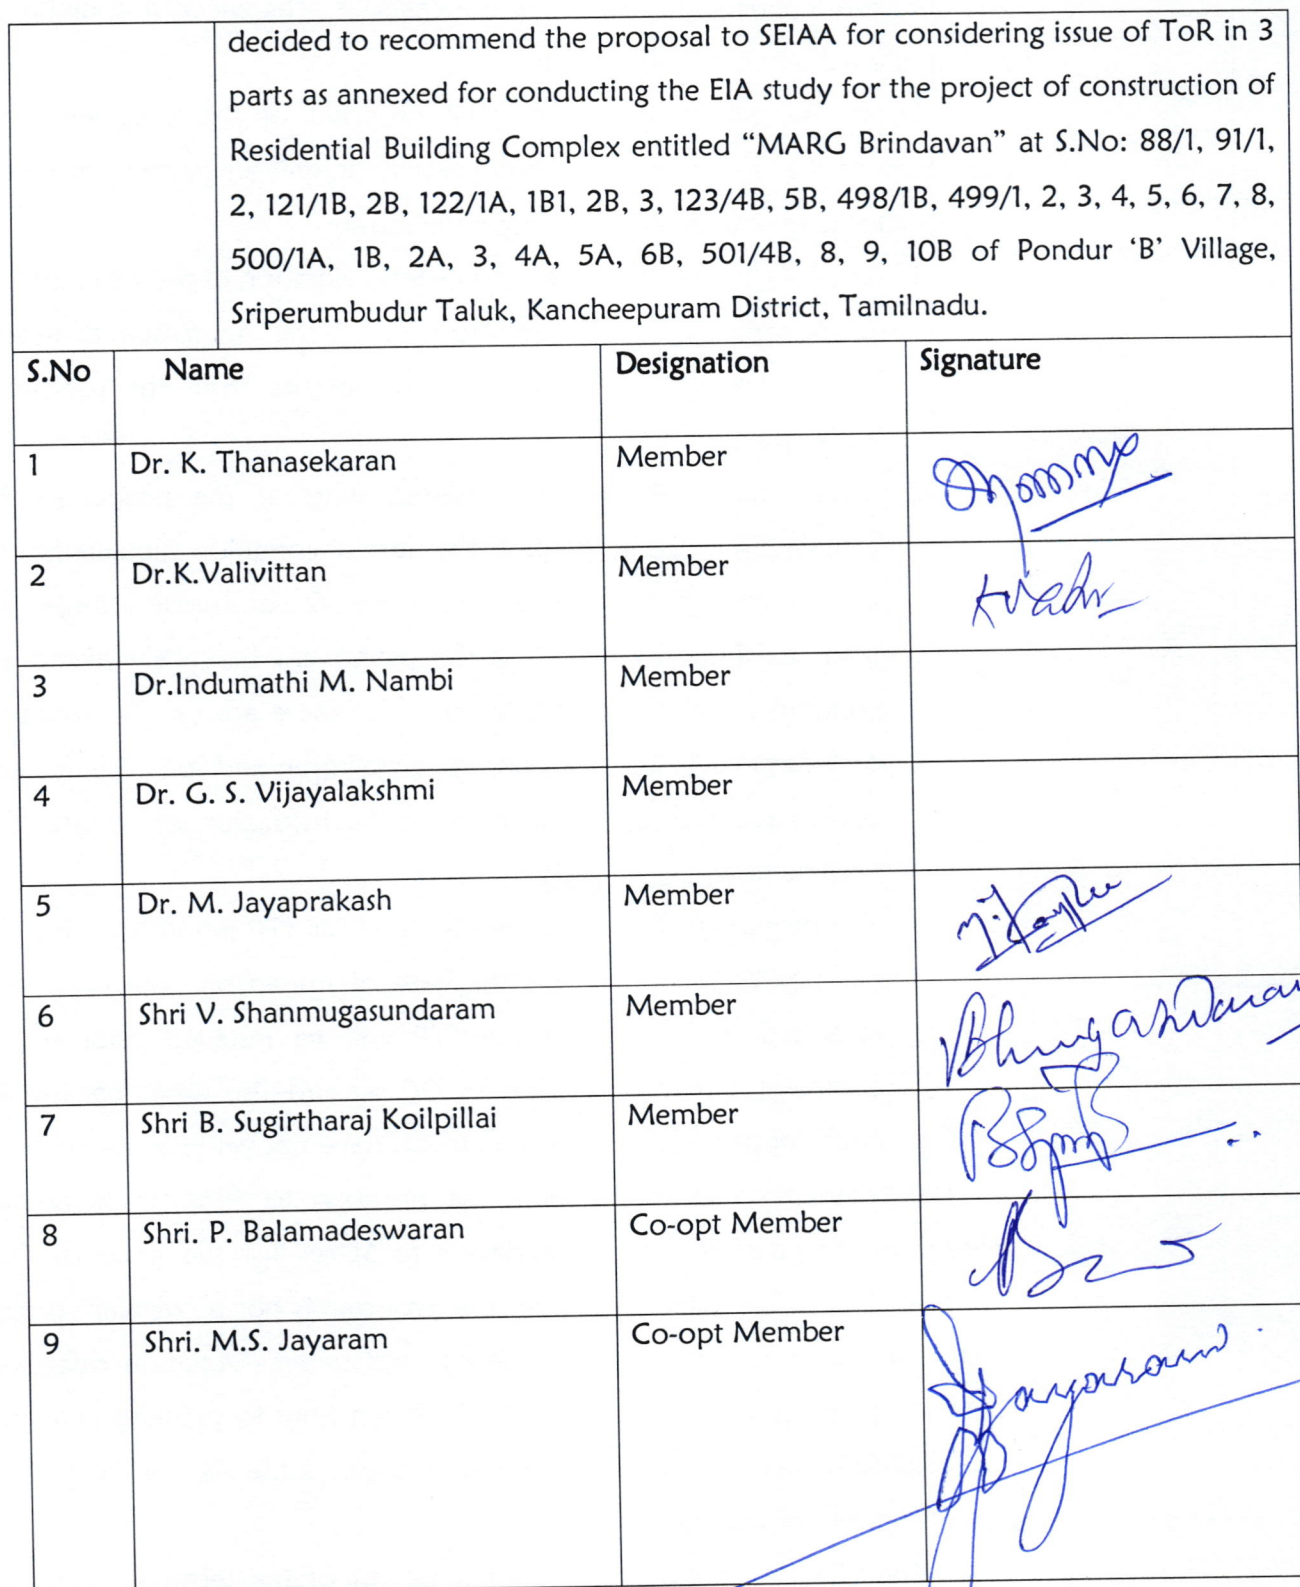 decided to recommend the proposal to SEIAA for considering issue of ToR in 3
parts as annexed for conducting the EIA study for the project of construction of
Residential Building Complex entitled “MARG Brindavan” at S.No: 88/1, 91/1,
2, 121/1B, 2B, 122/1A, 1B1, 2B, 3, 123/4B, 5B, 498/1B, 499/1, 2, 3, 4, 5, 6, 7, 8,
500/1A, 1B, 2A, 3, 4A, 5A, 6B, 501/4B, 8, 9, 10B of Pondur ‘B’ Village,
Sriperumbudur Taluk, Kancheepuram District, Tamilnadu.
S.No Name Designation Signature
1 Dr. K. Thanasekaran Member
2 Dr.K.Valivittan Member
3 Dr.Indumathi M. Nambi Member
4 Dr. G. S. Vijayalakshmi Member
5 Dr. M. Jayaprakash Member
6 Shri V. Shanmugasundaram Member
7 Shri B. Sugirtharaj Koilpillai Member
8 Shri. P. Balamadeswaran Co-opt Member
9 Shri. M.S. Jayaram Co-opt Member